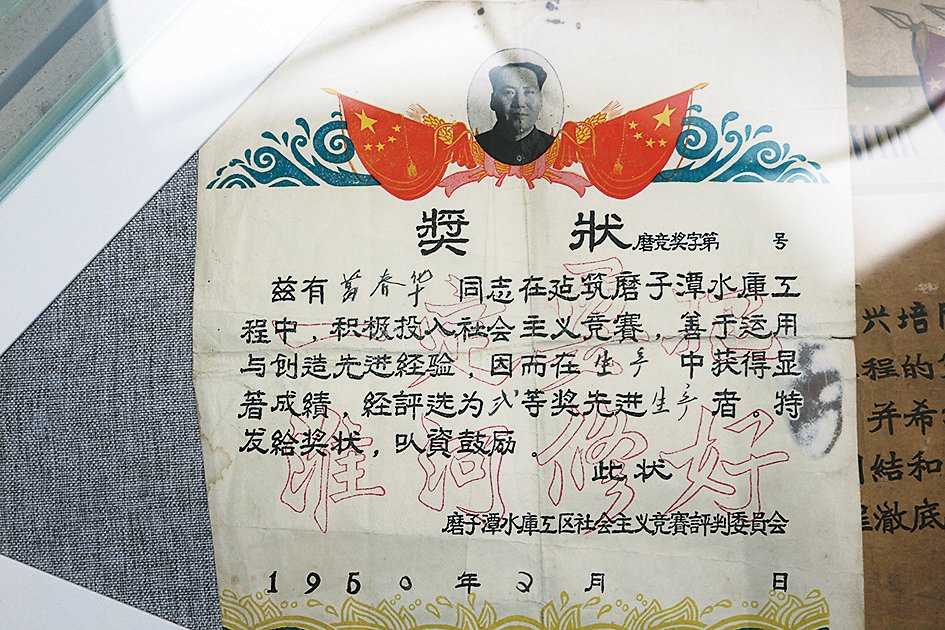 奬 狀 磨竞奖字第 号
兹有 葛春华 同志在建筑磨子潭水庫工
程中，积极投入社会主义竞賽，善于运用
与创造先进経验，因而在 生产 中获得显
著成績，経評选为弍等奖先进生产者。特
发给奖状，以資鼓励。
此状
磨子潭水庫工区社会主义竞賽評判委員会
1960年2月 日
一定要把
淮河修好
兴培
程的
并希
結和
澈底